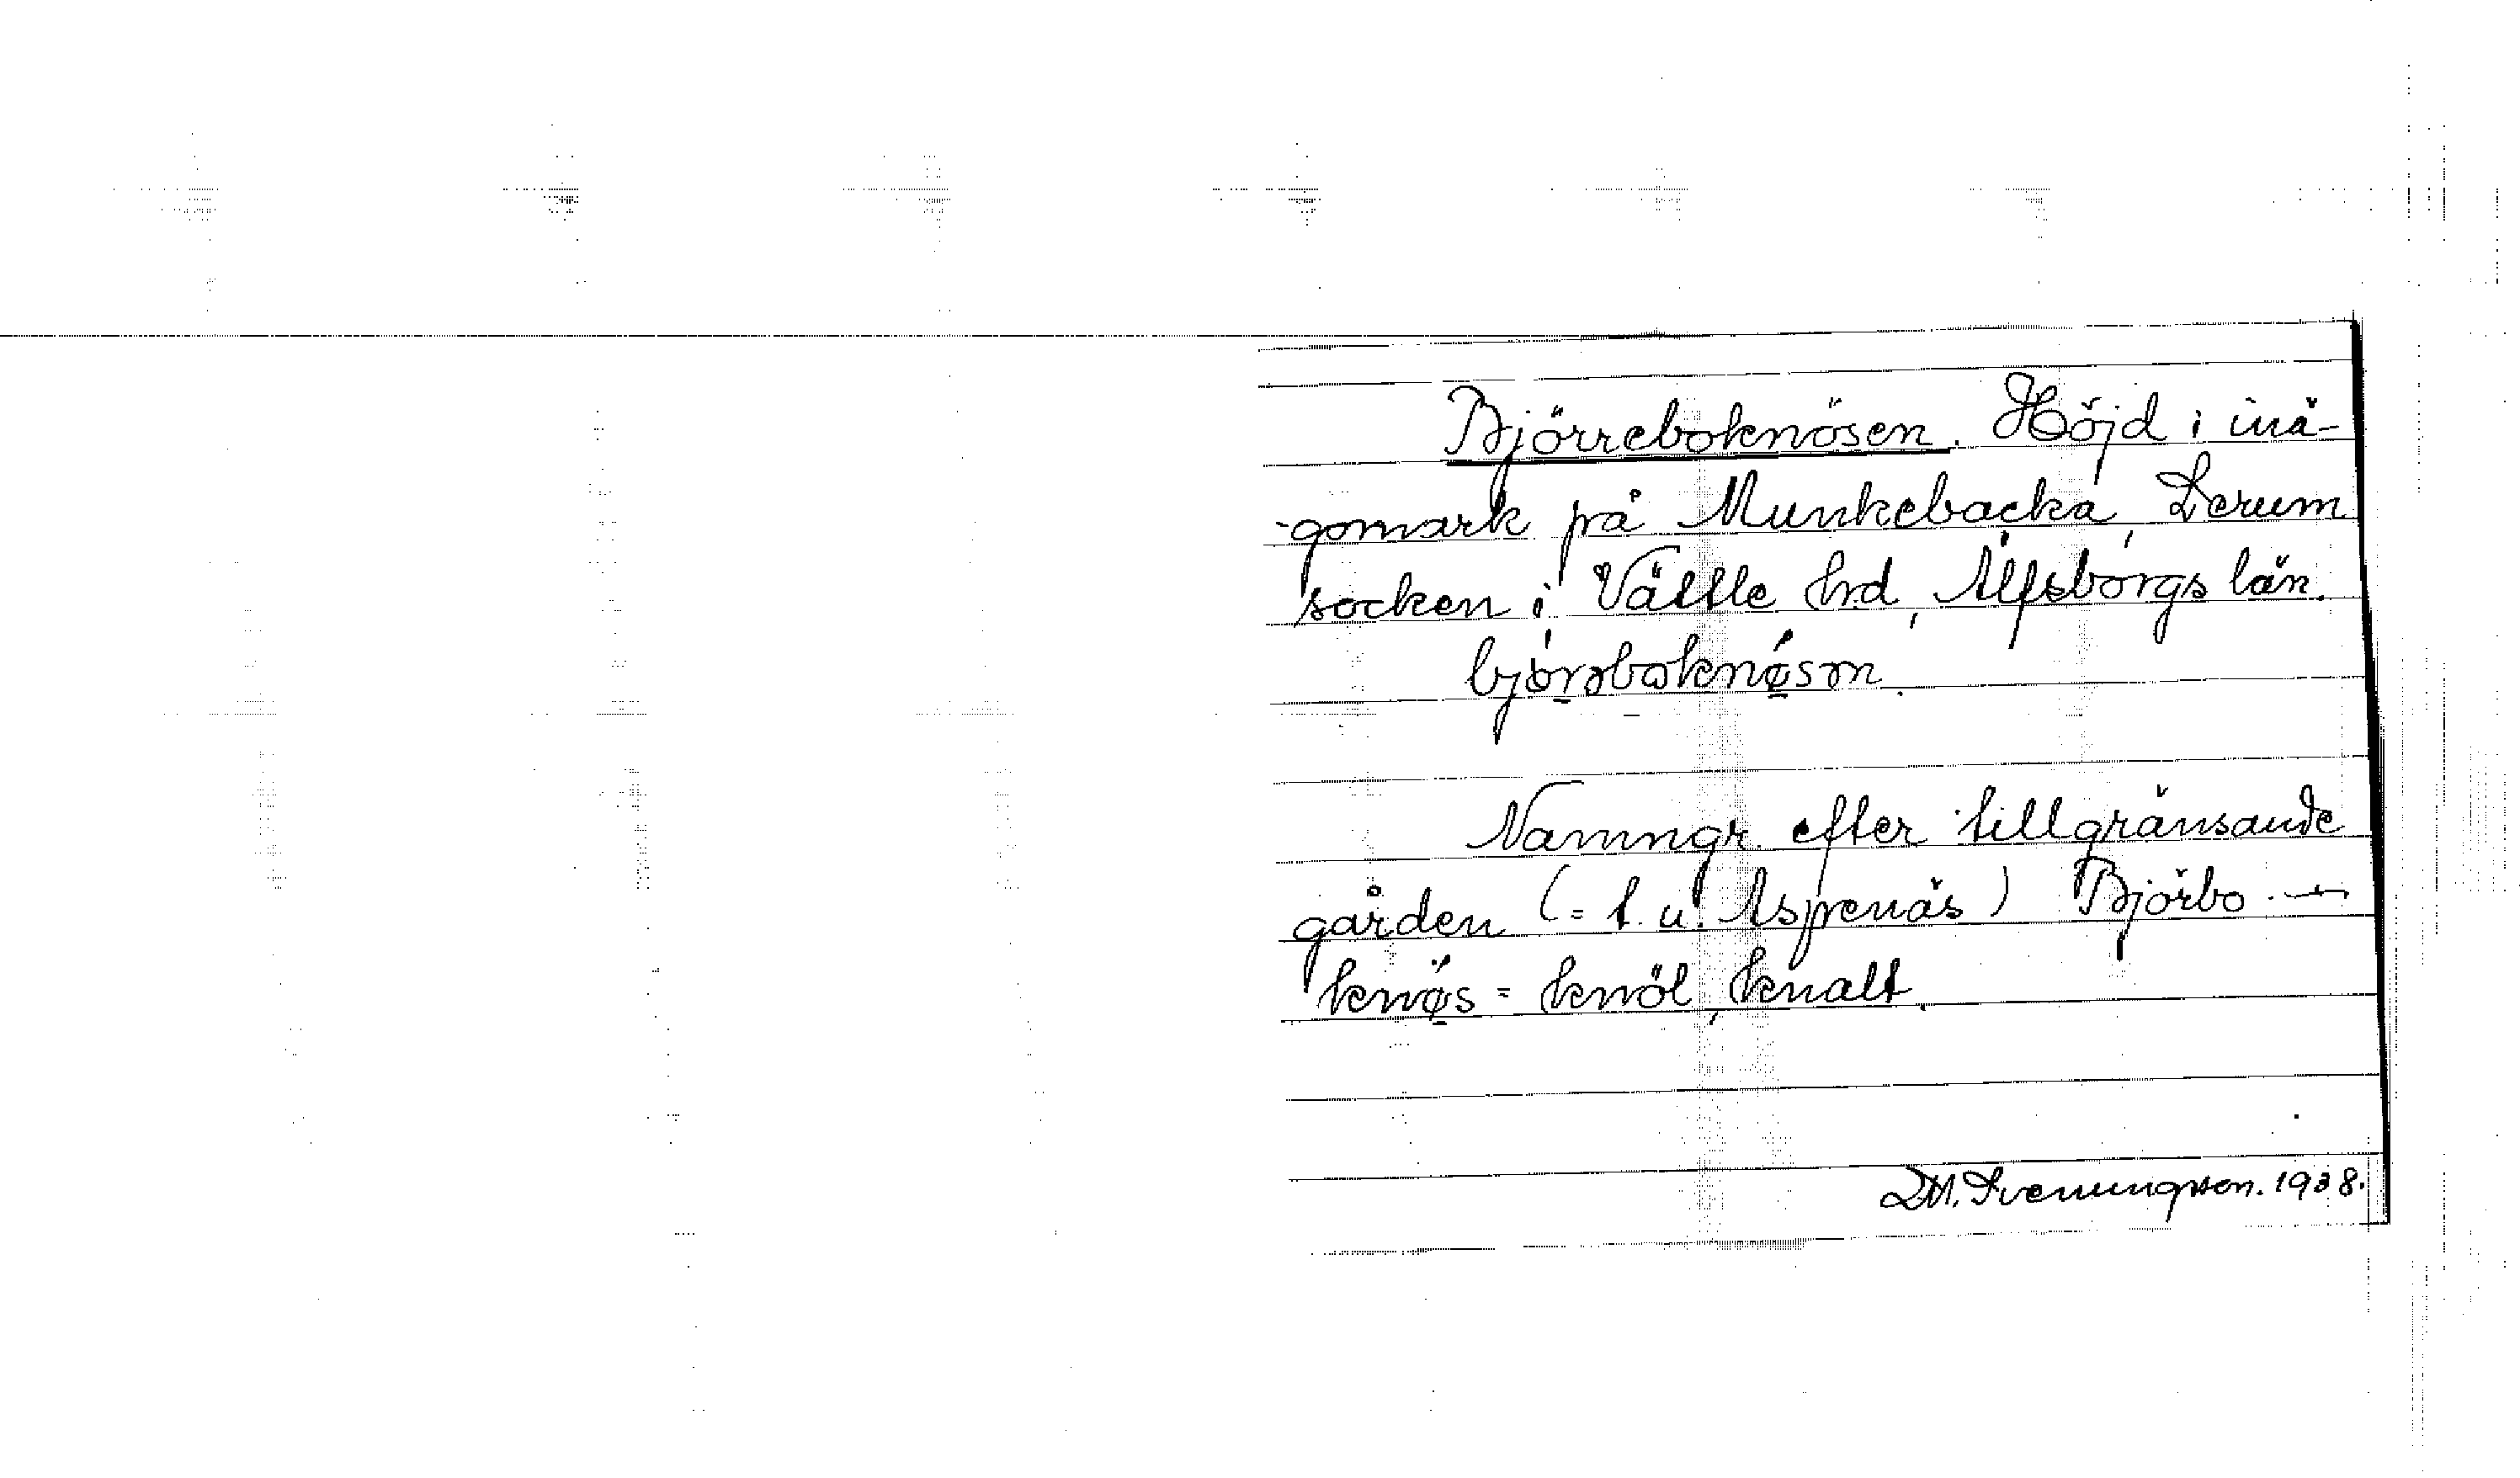 Björreboknösen. Höjd i inä-
gomark på Munkebacka, Lerum
socken i Vättle hrd, Älfsborgs län.
björəboknø̱sən.
Namngr. efter tillgränsande
gården (= t. u. Aspenäs) Björbo. —
knø̱s = knöl, knalt.
D.M. Svenungsson. 1938.